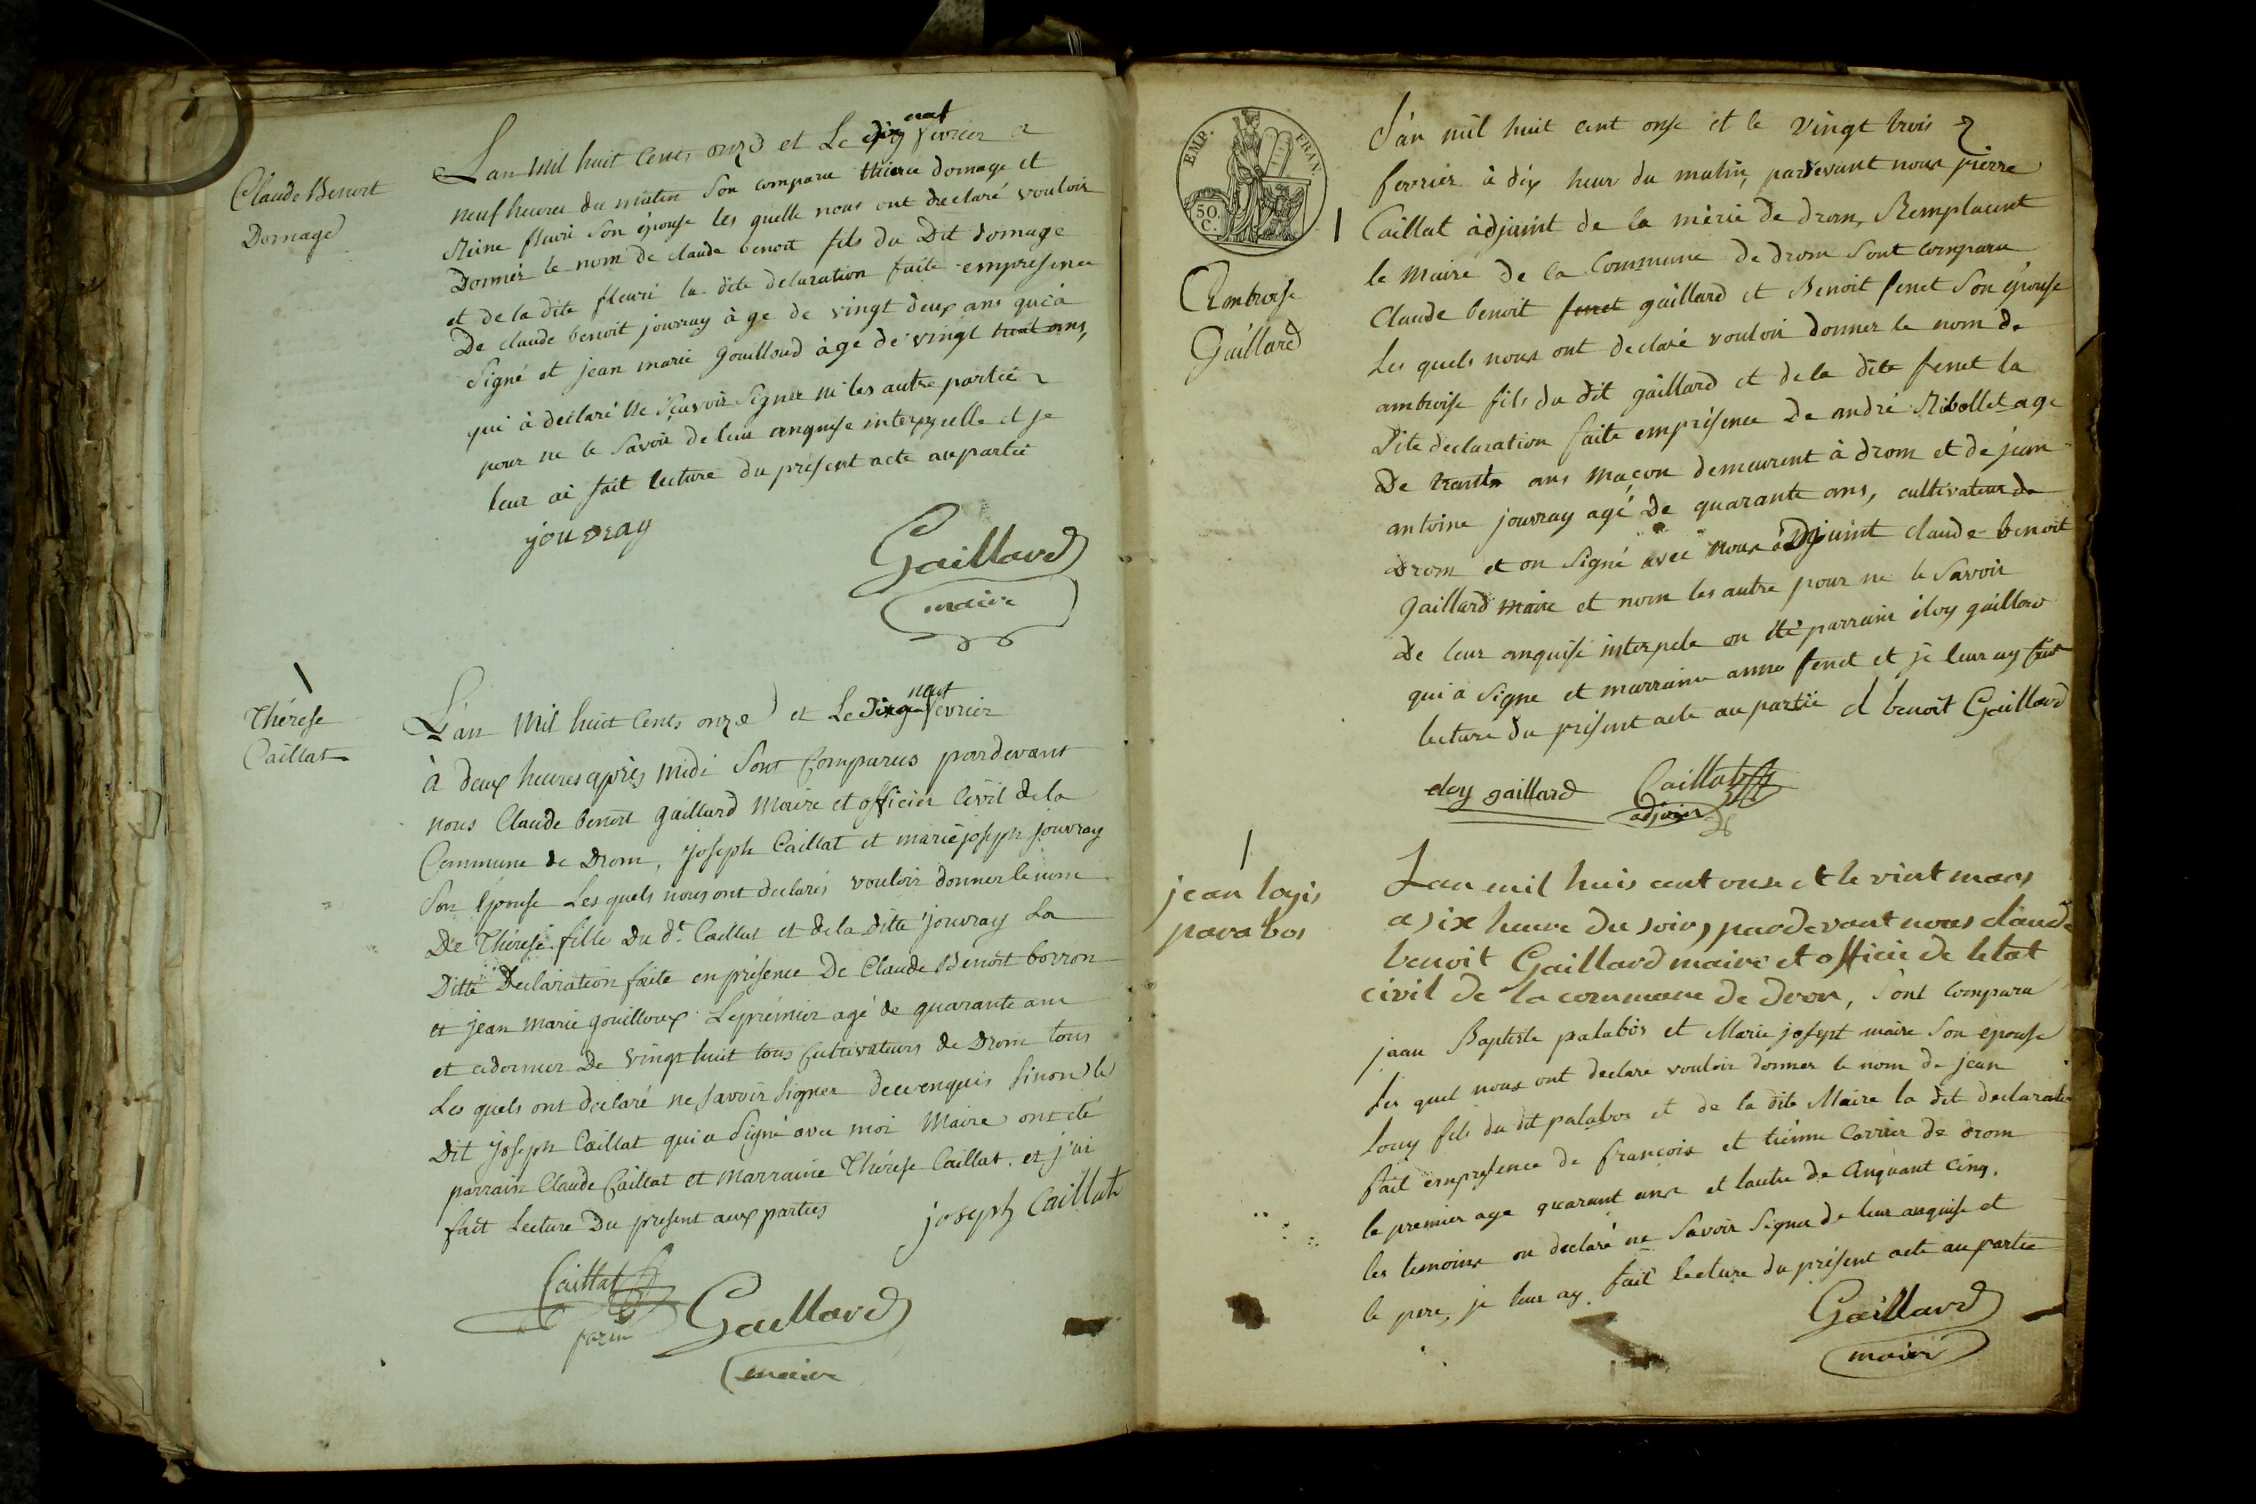 Claude Benoit
Domage
L'an mil huit cents onze et Le dix neuf fevrier a
neuf heures du matin Son comparu domage et
Reine fleuri Son épouse les quelle nous ont declaré vouloir
Donner le nom de claude benoit fils du Dit domage
et de la dite fleuri la dite declaration faite empresence
De claude benoit jouvray àge de vingt deux ans qui à
Signé et jean marie gouilloud àgé de vingt huit ans,
qui à declaré ne Sçavoir Signer ni les autre partie
pour ne le Savoir de leur anquise interpelle et je
leur ai fait lecture du présent acte au partie
jouvray
Gaillard
maire
Thérese
Caillat
L'an mil huit Cents onze et Le dix neuf fevrier
à deux heures après midi Sont Comparus pardevant
nous Claude benoit gaillard Maire et officier Civil de la
Commune de Drom, Joseph Caillat et marie joseph jouvray
Son Epouse Les quels nous ont declarés vouloir donner le nom
De Thérese fille Du dt. Caillat et de la ditte jouvray La
Ditte Declaration faite en présence De Claude Benoit borron
et jean marie gouilloux Le prémier agé de quarante ans
et De Vingt huit tous Cultivateurs de Drom tous
Les quels ont déclaré ne Savoir Signer de enquis Sinon le
Dit Joseph Caillat qui a Signé avec moi Maire ont eté
parrain Claude Caillat et marraine Thérese Caillat. et j'ai
fait Lecture Du present aux parties
joseph Caillat
Caillat
Gaillard
maire
EMP. FRAN.
50.
C.
Ambroise
Gaillard
L'an mil huit cent onse et le vingt trois
fevrier à dix heur du matin, pardevant nous pierre
Caillat àdjuint de la mèrie de drom, Remplacent
le maire de la Commune de drom Sont comparu
Claude benoit fenet gaillard et Benoit fenet Son épouse
Les quels nous ont declaré vouloir donner le nom de
ambroise fils du dit gaillard et de la dite fenet la
Dite declaration faite emprésence De andré Ribollet age
De trante ans Maçon demeurent à drom et de jean
antoine jouvray agé De quarante ans, cultivateur de
Drom et on Signé avec nous adjuint claude benoit
gaillard maire et nom les autre pour ne le Savoir
De leur anquise interpele on été parrain éloy gaillard
qui a Signe et marraine anne fenet et je leur ay fait
lecture du présent acte au partie cl benoit Gaillard
eloy gaillard
Caillat
adjoint
jean loyis
parabos
Lan mil huis cent onse et le vint mars
a six heure du soir, pardevant nous claude
benoit Gaillard maire et officie de letat
civil de la commune de drom, Sont compara
jean Baptiste palabos et Marie josept maire Son épouse
Les quel nous ont declare vouloir donner le nom de jean
Louy fils du dit palabos et de la dite Maire la dit declaratio
fait empresence de françois et tiénne Carrier de drom
le premier age quarant ans et lautre de cinquant cinq.
les temoins on declaré ne Savoir Signer de leur anquise et
le pere, je leur ay fait lecture du présent acte au partie
Gaillard
maire